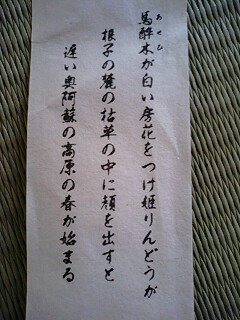 馬酔木が白い房花をつけ姫りんどうが
根子の麓の枯草の中に顔を出すと
遅い奥阿蘇の高原の春が始まる